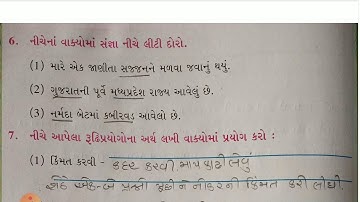 6. નીચેનાં વાક્યોમાં સંજ્ઞા નીચે લીટી દોરો.
(1) મારે એક જાણીતા સજ્જનને મળવા જવાનું થયું.
(2) ગુજરાતની પૂર્વે મધ્યપ્રદેશ રાજ્ય આવેલું છે.
(3) નર્મદા બેટમાં કબીરવડ આવેલો છે.
7. નીચે આપેલા રૂઢિપ્રયોગોના અર્થ લખી વાક્યોમાં પ્રયોગ કરો :
(1) કિંમત કરવી - કદર કરવી, માપ કાઢી લેવું
શેઠે એક-બે પ્રશ્નો પૂછીને નોકરની કિંમત કરી લીધી.